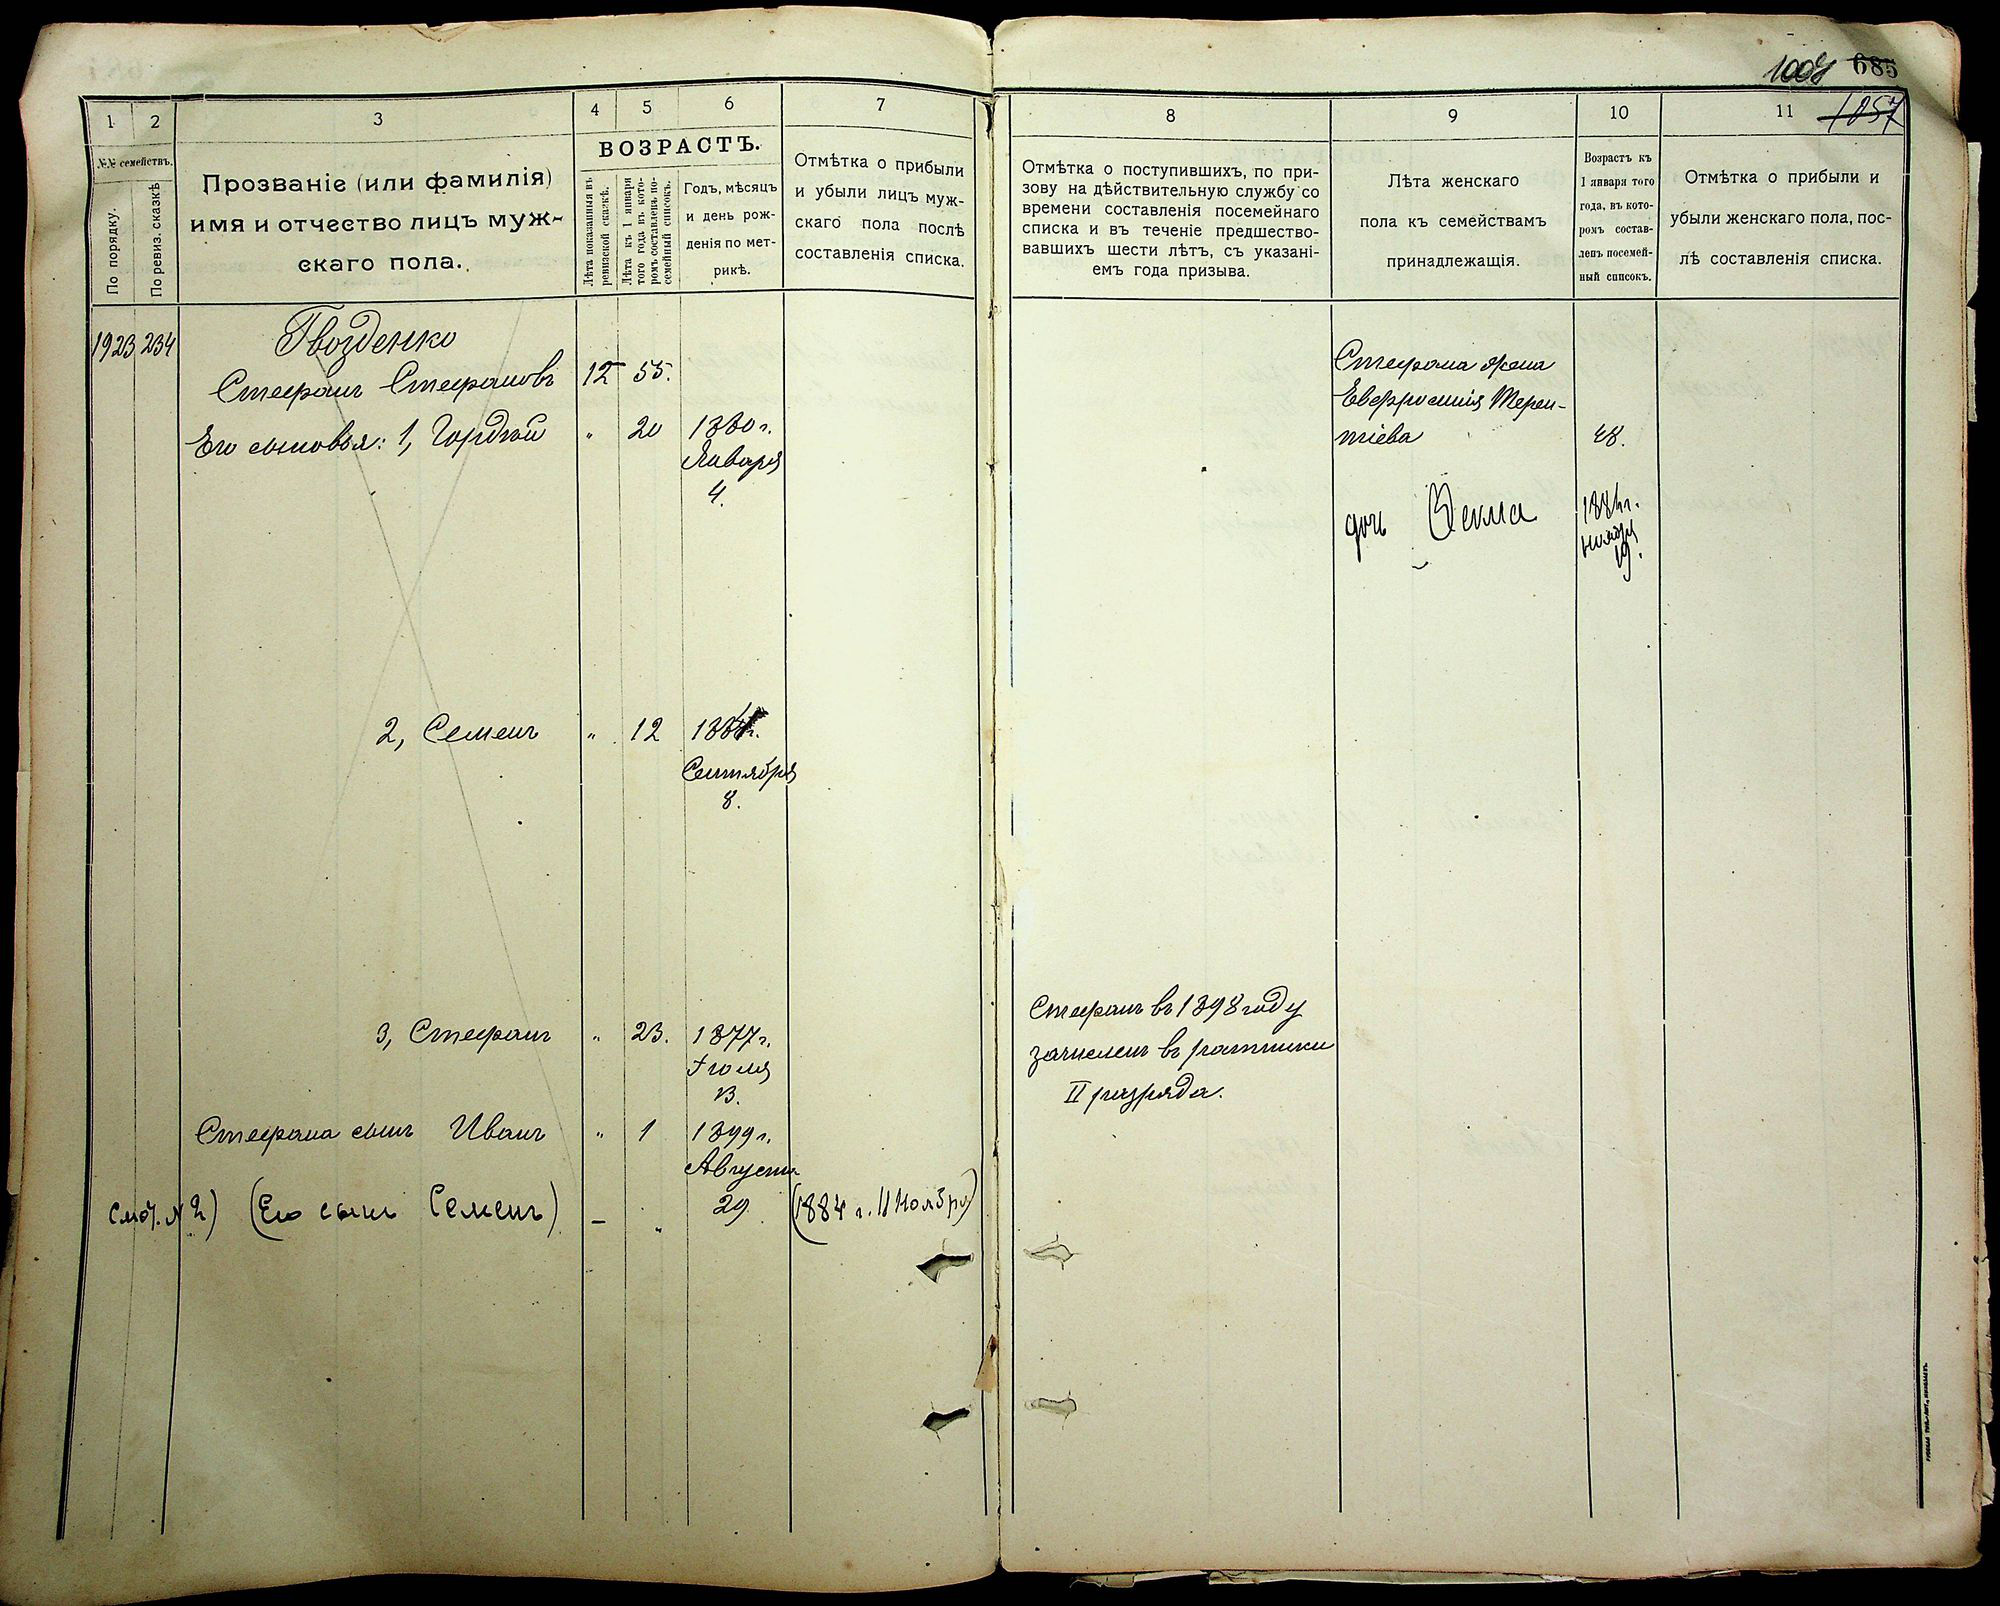 1007 685
1057
1
2
3
4
5
6
7
№№ семействъ.
По порядку.
По ревиз. сказкѣ
Прозваніе (или фамилія)
имя и отчество лицъ муж-
скаго пола.
ВОЗРАСТЪ.
Лѣта показанныя въ
ревизской сказкѣ.
Лѣта къ 1 января
того года въ кото-
ромъ составленъ по-
семейный списокъ.
Годъ, мѣсяцъ
и день рож-
денія по мет-
рикѣ.
Отмѣтка о прибыли
и убыли лицъ муж-
скаго пола послѣ
составленія списка.
1923 234
Гвозденко
Стефанъ Стефановъ 12 55.
Его сыновья: 1, Гордѣй " 20 1880 г.
Января
4.
2, Семенъ " 12
Сентября
8.
3, Стефанъ " 23. 1877 г.
Іюля
13.
Стефана сынъ Иванъ " 1 1899 г.
Августа
29
(Его сынъ Семенъ) — " (1884 г. 11 Ноября)
8
9
10
11
Отмѣтка о поступившихъ, по при-
зову на дѣйствительную службу со
времени составленія посемейнаго
списка и въ теченіе предшество-
вавшихъ шести лѣтъ, съ указані-
емъ года призыва.
Лѣта женскаго
пола къ семействамъ
принадлежащія.
Возрастъ къ
1 января того
года, въ кото-
ромъ состав-
ленъ посемей-
ный списокъ.
Отмѣтка о прибыли и
убыли женскаго пола, пос-
лѣ составленія списка.
Стефана жена
Евфросинія Терен-
тіева 48.
дочь Ѳекла
Ноября
19.
Стефанъ въ 1898 году
зачисленъ въ ратники
II разряда.